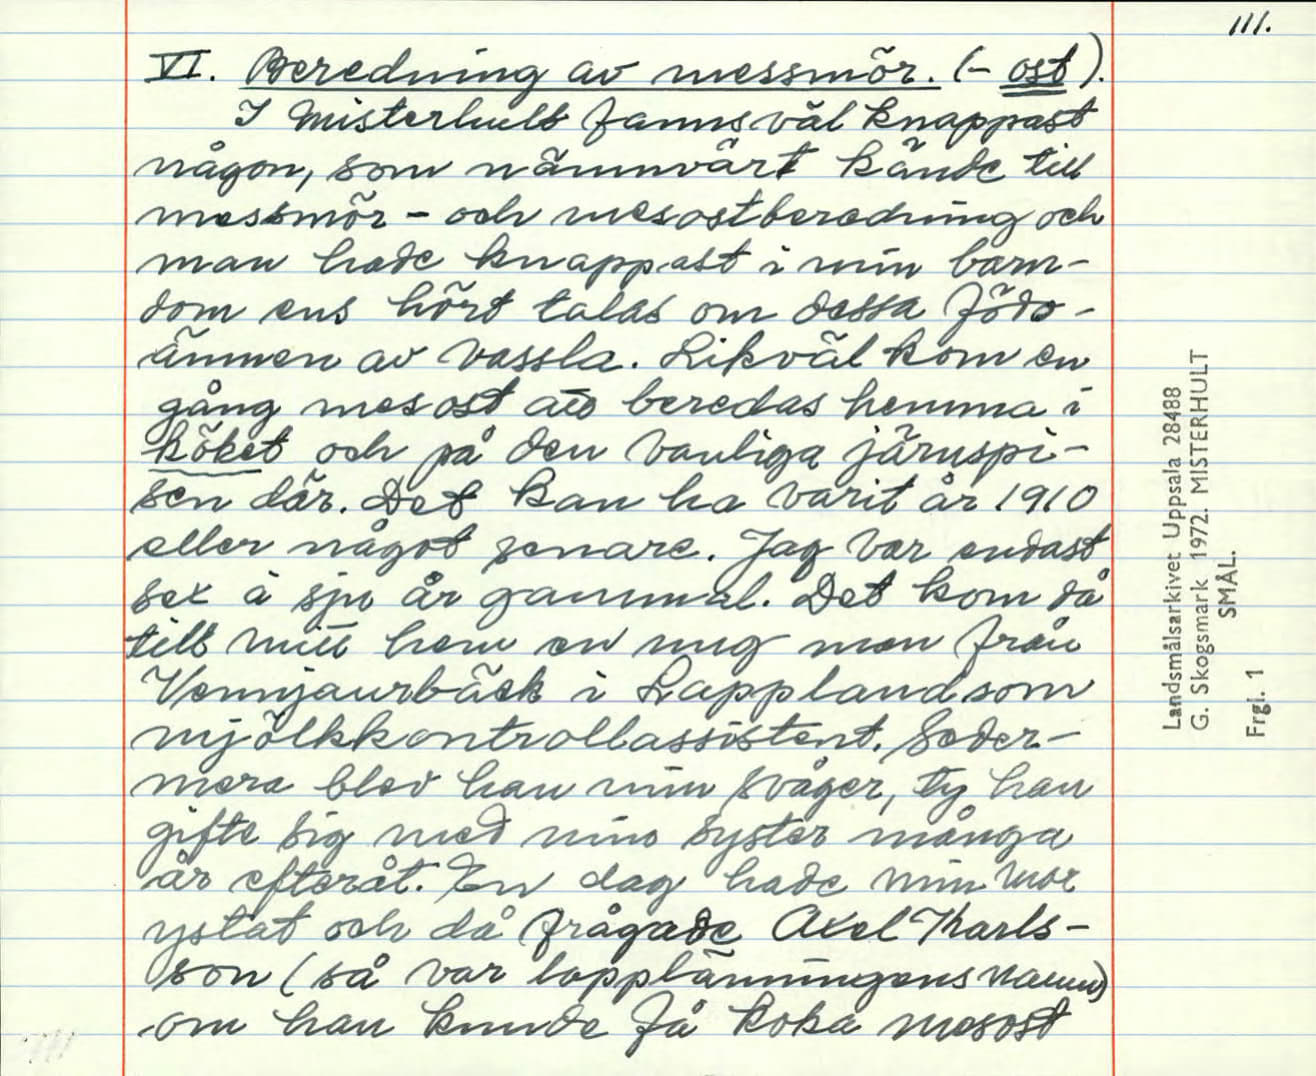 111.
VI. Beredning av messmör. (- ost).
I Misterhult fanns väl knappast
någon, som nämnvärt kände till
messmör - och mesostberedning och
man hade knappast i min barn-
dom ens hört talas om dessa födo-
ämnen av vassla. Likväl kom en
gång mesost att beredas hemma i
köket och på den vanliga järnspi-
sen där. Det kan ha varit år 1910
eller något senare. Jag var endast
sex à sju år gammal. Det kom då
till mitt hem en ung man från
Vennjaurbäck i Lappland som
mjölkkontrollassistent. Seder-
mera blev han min svåger, ty han
gifte sig med min syster många
år efteråt. En dag hade min mor
ystat och då frågade Axel Karls-
son (så var lapplänningens namn)
om han kunde få koka mesost
Landsmålsarkivet Uppsala 28488
G. Skogsmark 1972. MISTERHULT
SMÅL.
Frgl. 1